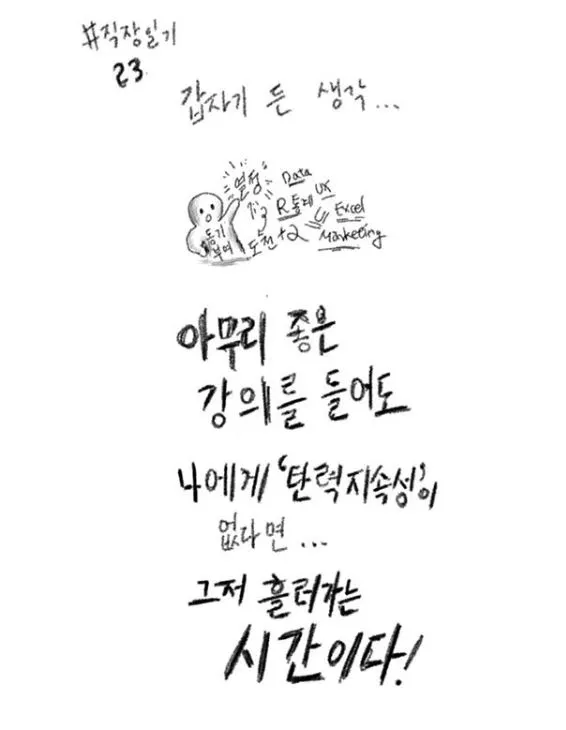 #직장일기
23
갑자기 든 생각...
열정
Data
R통계
UX
Excel
Marketing
동기
부여
도전 +2
아무리 좋은
강의를 들어도
나에게 '탄력지속성'이
없다면...
그저 흘러가는
시간이다!